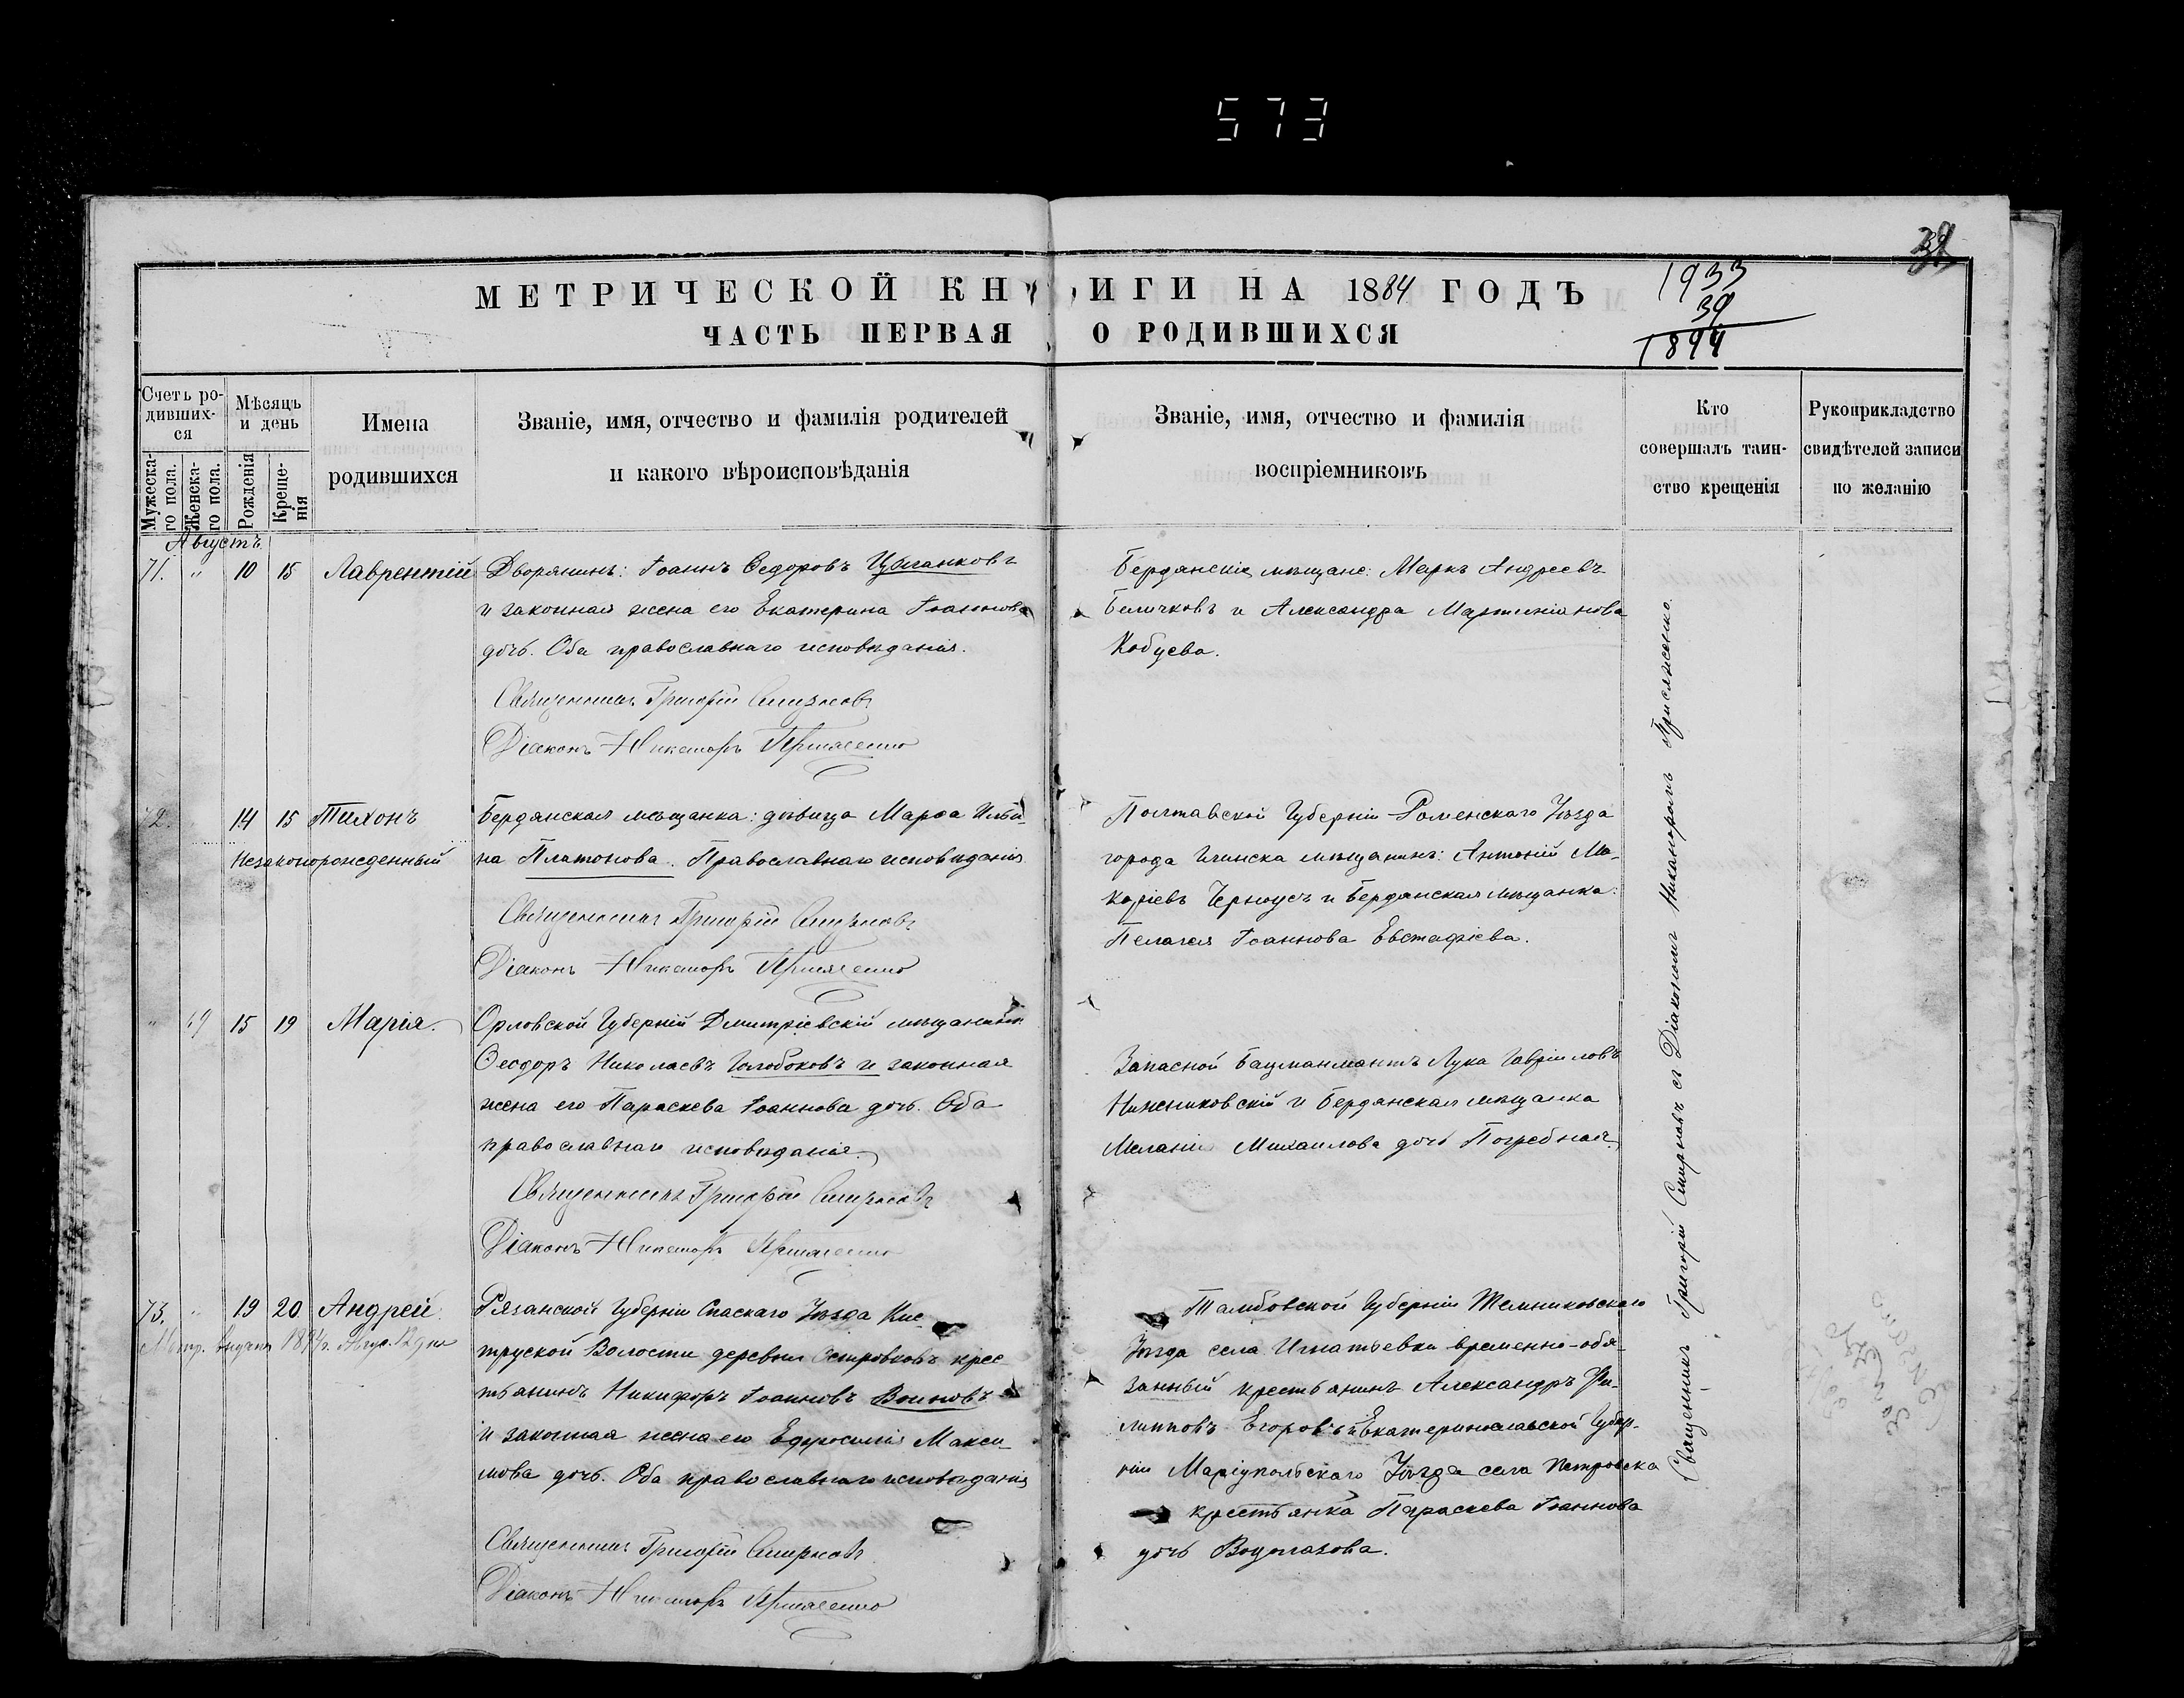 573
39
МЕТРИЧЕСКОЙ КНИГИ НА 1884 ГОДЪ
ЧАСТЬ ПЕРВАЯ О РОДИВШИХСЯ
1933
39
1894
Счетъ ро-
дивших-
ся
Мужеска-
го пола.
Женска-
го пола.
Мѣсяцъ
и день
Рожденія
Креще-
нія
Имена
родившихся
Званіе, имя, отчество и фамилія родителей
и какого вѣроисповѣданія
Званіе, имя, отчество и фамилія
воспріемниковъ
Кто
совершалъ таин-
ство крещенія
Рукоприкладство
свидѣтелей записи
по желанію
Августъ
71. " 10 15 Лаврентій
Дворянинъ: Іоаннъ Ѳедоровъ Цыганковъ
и законная жена его Екатерина Іоаннова
дочь. Оба православнаго исповѣданія.
Священникъ Григорій Смирновъ
Діаконъ Никаноръ
Бердянскіе мѣщане: Маркъ Андреевъ
Беличковъ и Александра Мартиніанова
Кобцева.
72. 14 15 Тихонъ
незаконорожденный
Бердянская мѣщанка: дѣвица Марѳа Ильи-
на Платонова. Православнаго исповѣданія
Священникъ Григорій Смирновъ
Діаконъ Никаноръ
Полтавской Губерніи Роменскаго Уѣзда
города Глинска мѣщанинъ: Антоній Ма-
каріевъ Черноусъ и Бердянская мѣщанка:
Пелагея Іоаннова Евстафіева.
" 69 15 19 Марія.
Орловской Губерніи Дмитріевскій мѣщанинъ
Ѳеодоръ Николаевъ Голобоковъ и законная
жена его Параскева Іоаннова дочь. Оба
православнаго исповѣданія.
Священникъ Григорій Смирновъ
Діаконъ Никаноръ
Запасной Боцманматъ Лука Гавріиловъ
Нижниковскій и Бердянская мѣщанка
Меланія Михаилова дочь Погребная.
73. " 19 20 Андрей.
Метр. выдана
Рязанской Губерніи Спаскаго Уѣзда Кис-
труской Волости деревни Островковъ крес-
тьянинъ Никифоръ Іоанновъ Воиновъ
и законная жена его Ефросинія Макси-
мова дочь. Оба православнаго исповѣданія
Священникъ Григорій Смирновъ
Діаконъ Никаноръ
Тамбовской Губерніи Темниковскаго
Уѣзда села Игнатьевки временно-обя-
занный крестьянинъ Александръ Фи-
липповъ Егоровъ и Екатеринославской Губер-
ніи Маріупольскаго Уѣзда села Петровска
крестьянка Параскева Іоаннова
дочь Водолазова.
Священникъ Григорій Смирновъ съ Діакономъ Никаноромъ Присяженко.